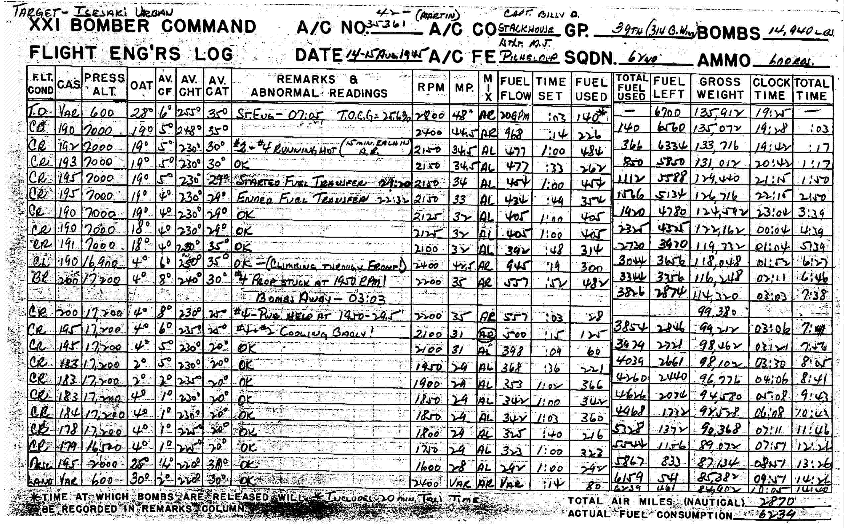 TARGET- ISESAKI URBAN
42- (MARTIN) CAPT. BILLY
XXI BOMBER COMMAND A/C NO. 35361 A/C CO STACKHOUSE GP. 39TH (314 B. Wing) BOMBS 14,940 LBS
FLIGHT ENG'RS LOG DATE 14-15 Aug 1945 A/C FE SQDN. AMMO
FLT. COND CAS PRESS ALT. OAT AV. CF AV. CHT AV. CAT REMARKS & ABNORMAL READINGS RPM MP. MIX FUEL FLOW TIME SET FUEL USED TOTAL FUEL USED FUEL LEFT GROSS WEIGHT CLOCK TIME TOTAL TIME
T.O. VAR 600 28° 6° 255° 35° ST. ENG- 07:05 T.O.C.G.= 2800 48" AR :03 140* — 6700 135,912 19:25 —
190 7000 19° 5° 248° 35° 2400 AR 968 :14 226 140 6560 135,072 19:28 :03
CR 192 7000 19° 5° 230° 30° #2-#4 RUNNING HOT 2150 34.5 AL 477 1:00 484 366 6334 133,716 19:42 :17
CR 193 7000 19° 5° 230° 30° OK 2150 34.5 AL 477 :33 262 850 5850 131,012 20:42 1:17
CR 195 7000 19° 5° 230° 29° STARTED FUEL TRANSFER 2150 34 AL 454 1:00 454 1112 5588 129,440 21:15 1:50
CR 195 7000 19° 4° 230° 29° ENDED FUEL TRANSFER 22:32 2150 33 AL 434 :49 354 1566 5134 126,716 22:15 2:50
CR 190 7000 19° 4° 230° 29° OK 2125 32 AL 405 1:00 405 1920 4780 124,592 23:04 3:39
CR 190 7000 18° 4° 230° 29° OK 2125 32 AL 405 1:00 405 2325 4375 122,162 00:04 4:39
CR 191 7000 18° 4° 230° 35° OK 2100 32 AL 392 :48 314 2720 3970 119,732 01:04 5:39
190 16,900 4° 6° 230° 35° OK-(CLIMBING THROUGH FRONT) 2400 42.5 AR 945 :19 300 3044 3656 118,048 01:52 6:27
200 17,200 4° 8° 240° 30° #4 PROP STUCK AT 1950 RPM! 2200 35 AR 557 :52 482 3344 3356 116,248 02:11 6:46
BOMBS AWAY - 03:03 3826 2874 114,320 03:03 7:38
99,380
CR 200 17,200 4° 8° 230° 25° #4- 2200 35 AR 557 :03 28
CR 195 17,200 4° 6° 235° 25° #4+2 COOLING BADLY! 2100 31 500 :15 125 3854 2846 99,212 03:06
CR 195 17,200 4° 5° 230° 20° OK 2100 31 AL 398 :09 60 3979 2721 98,462 03:21 7:56
CR 183 17,200 2° 5° 230° 20° OK 1950 29 AL 368 :36 221 4039 2661 98,102 03:30 8:05
CR 183 17,200 2° 2° 225° 20° OK 1900 29 AL 353 1:02 366 4260 2440 96,776 04:06 8:41
CR 183 17,200 4° 1° 230° 20° OK 1850 29 AL 342 1:00 342 4626 2074 94,580 05:08 9:43
CR 184 17,200 4° 1° 20° OK 1850 29 AL 342 1:03 360 4968 1732 92,528 06:08 10:43
CR 178 17,200 4° 1° 20° OK 1800 29 AL 325 :40 216 5328 1372 90,368 07:11 11:46
CR 179 4° 1° 20° OK 1750 29 AL 323 1:00 323 5544 1156 89,072 07:51 12:26
195 2000 28° 220° OK 1600 28 AL 292 1:00 292 5867 833 87,134 08:51 13:26
LAND VAR 600 30° 2° 220° OK 2400 VAR AR VAR :14 80 6159 541 85,382 09:51 14:26
6239 461 10:05 14:40
*TIME AT WHICH BOMBS ARE RELEASED WILL * INCLUDES 20 MIN. TAXI TIME TOTAL AIR MILES (NAUTICAL) 2870
BE RECORDED IN REMARKS COLUMN. ACTUAL FUEL CONSUMPTION 6239